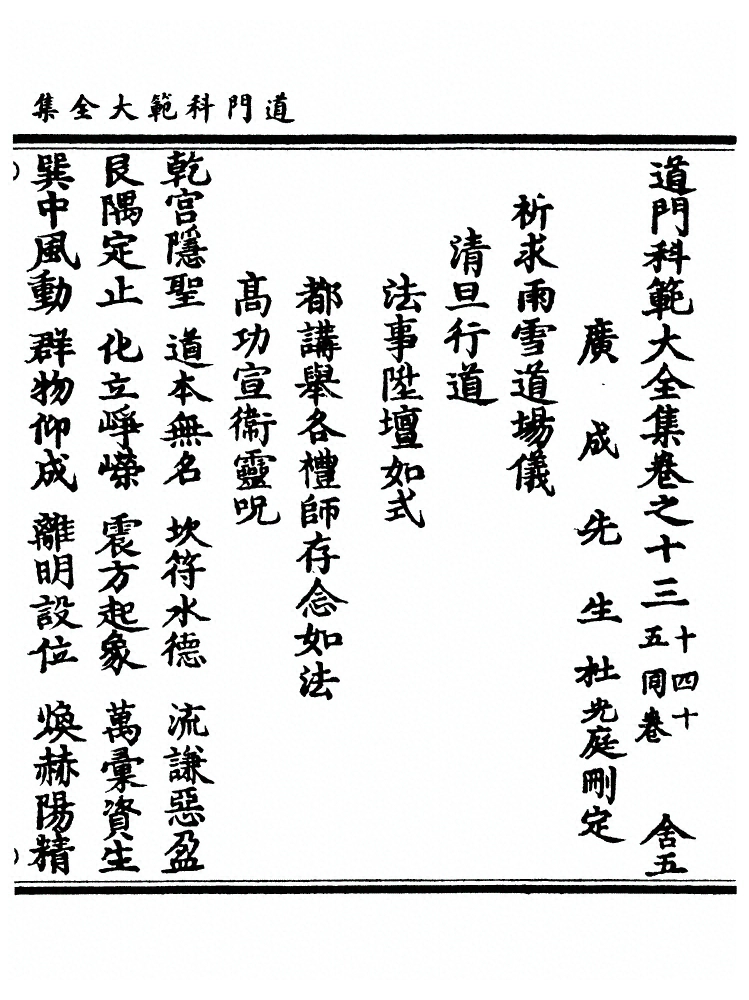 道門科範大全集
道門科範大全集卷之十三 十四十五同卷 舍五
廣成先生杜光庭刪定
祈求雨雪道場儀
清旦行道
法事陞壇如式
都講舉各禮師存念如法
高功宣衞靈呪
乾宮隱聖 道本無名 坎符水德 流謙惡盈
艮隅定止 化立崢嶸 震方起象 萬彙資生
巽中風動 群物仰成 離明設位 煥赫陽精